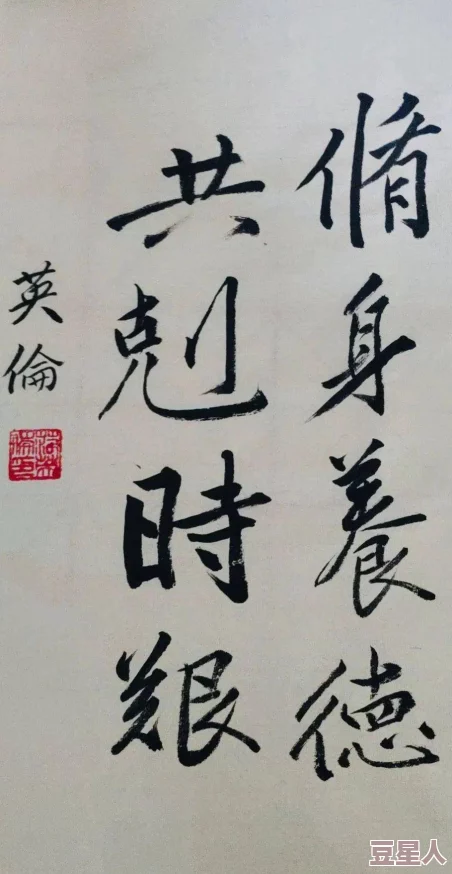 脩身養德
共剋時艱
英倫
豆星人